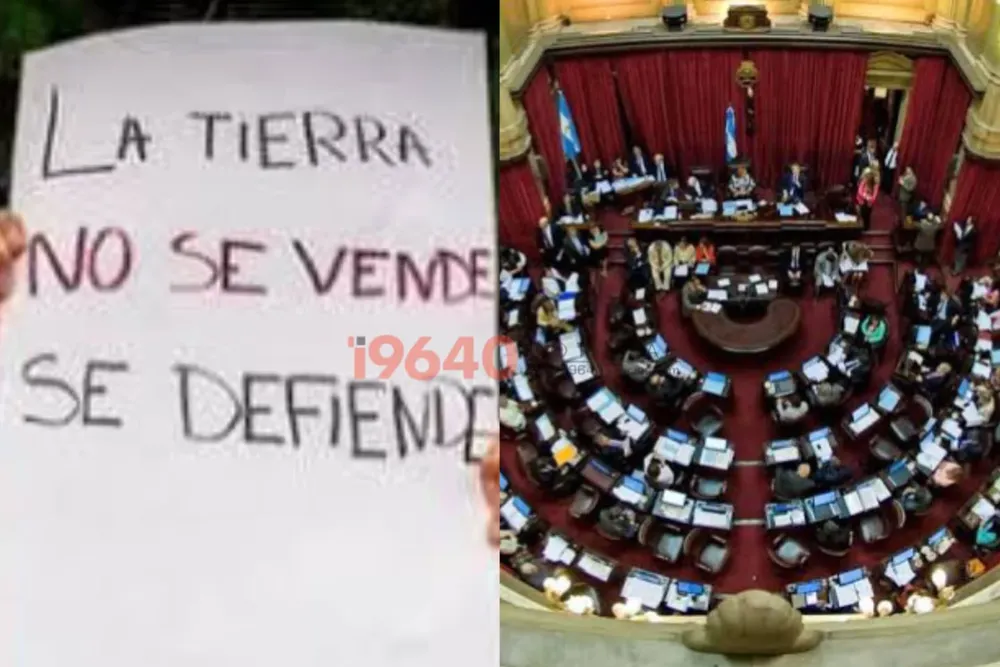 LA TIERRA
NO SE VENDE
SE DEFIENDE
i9640